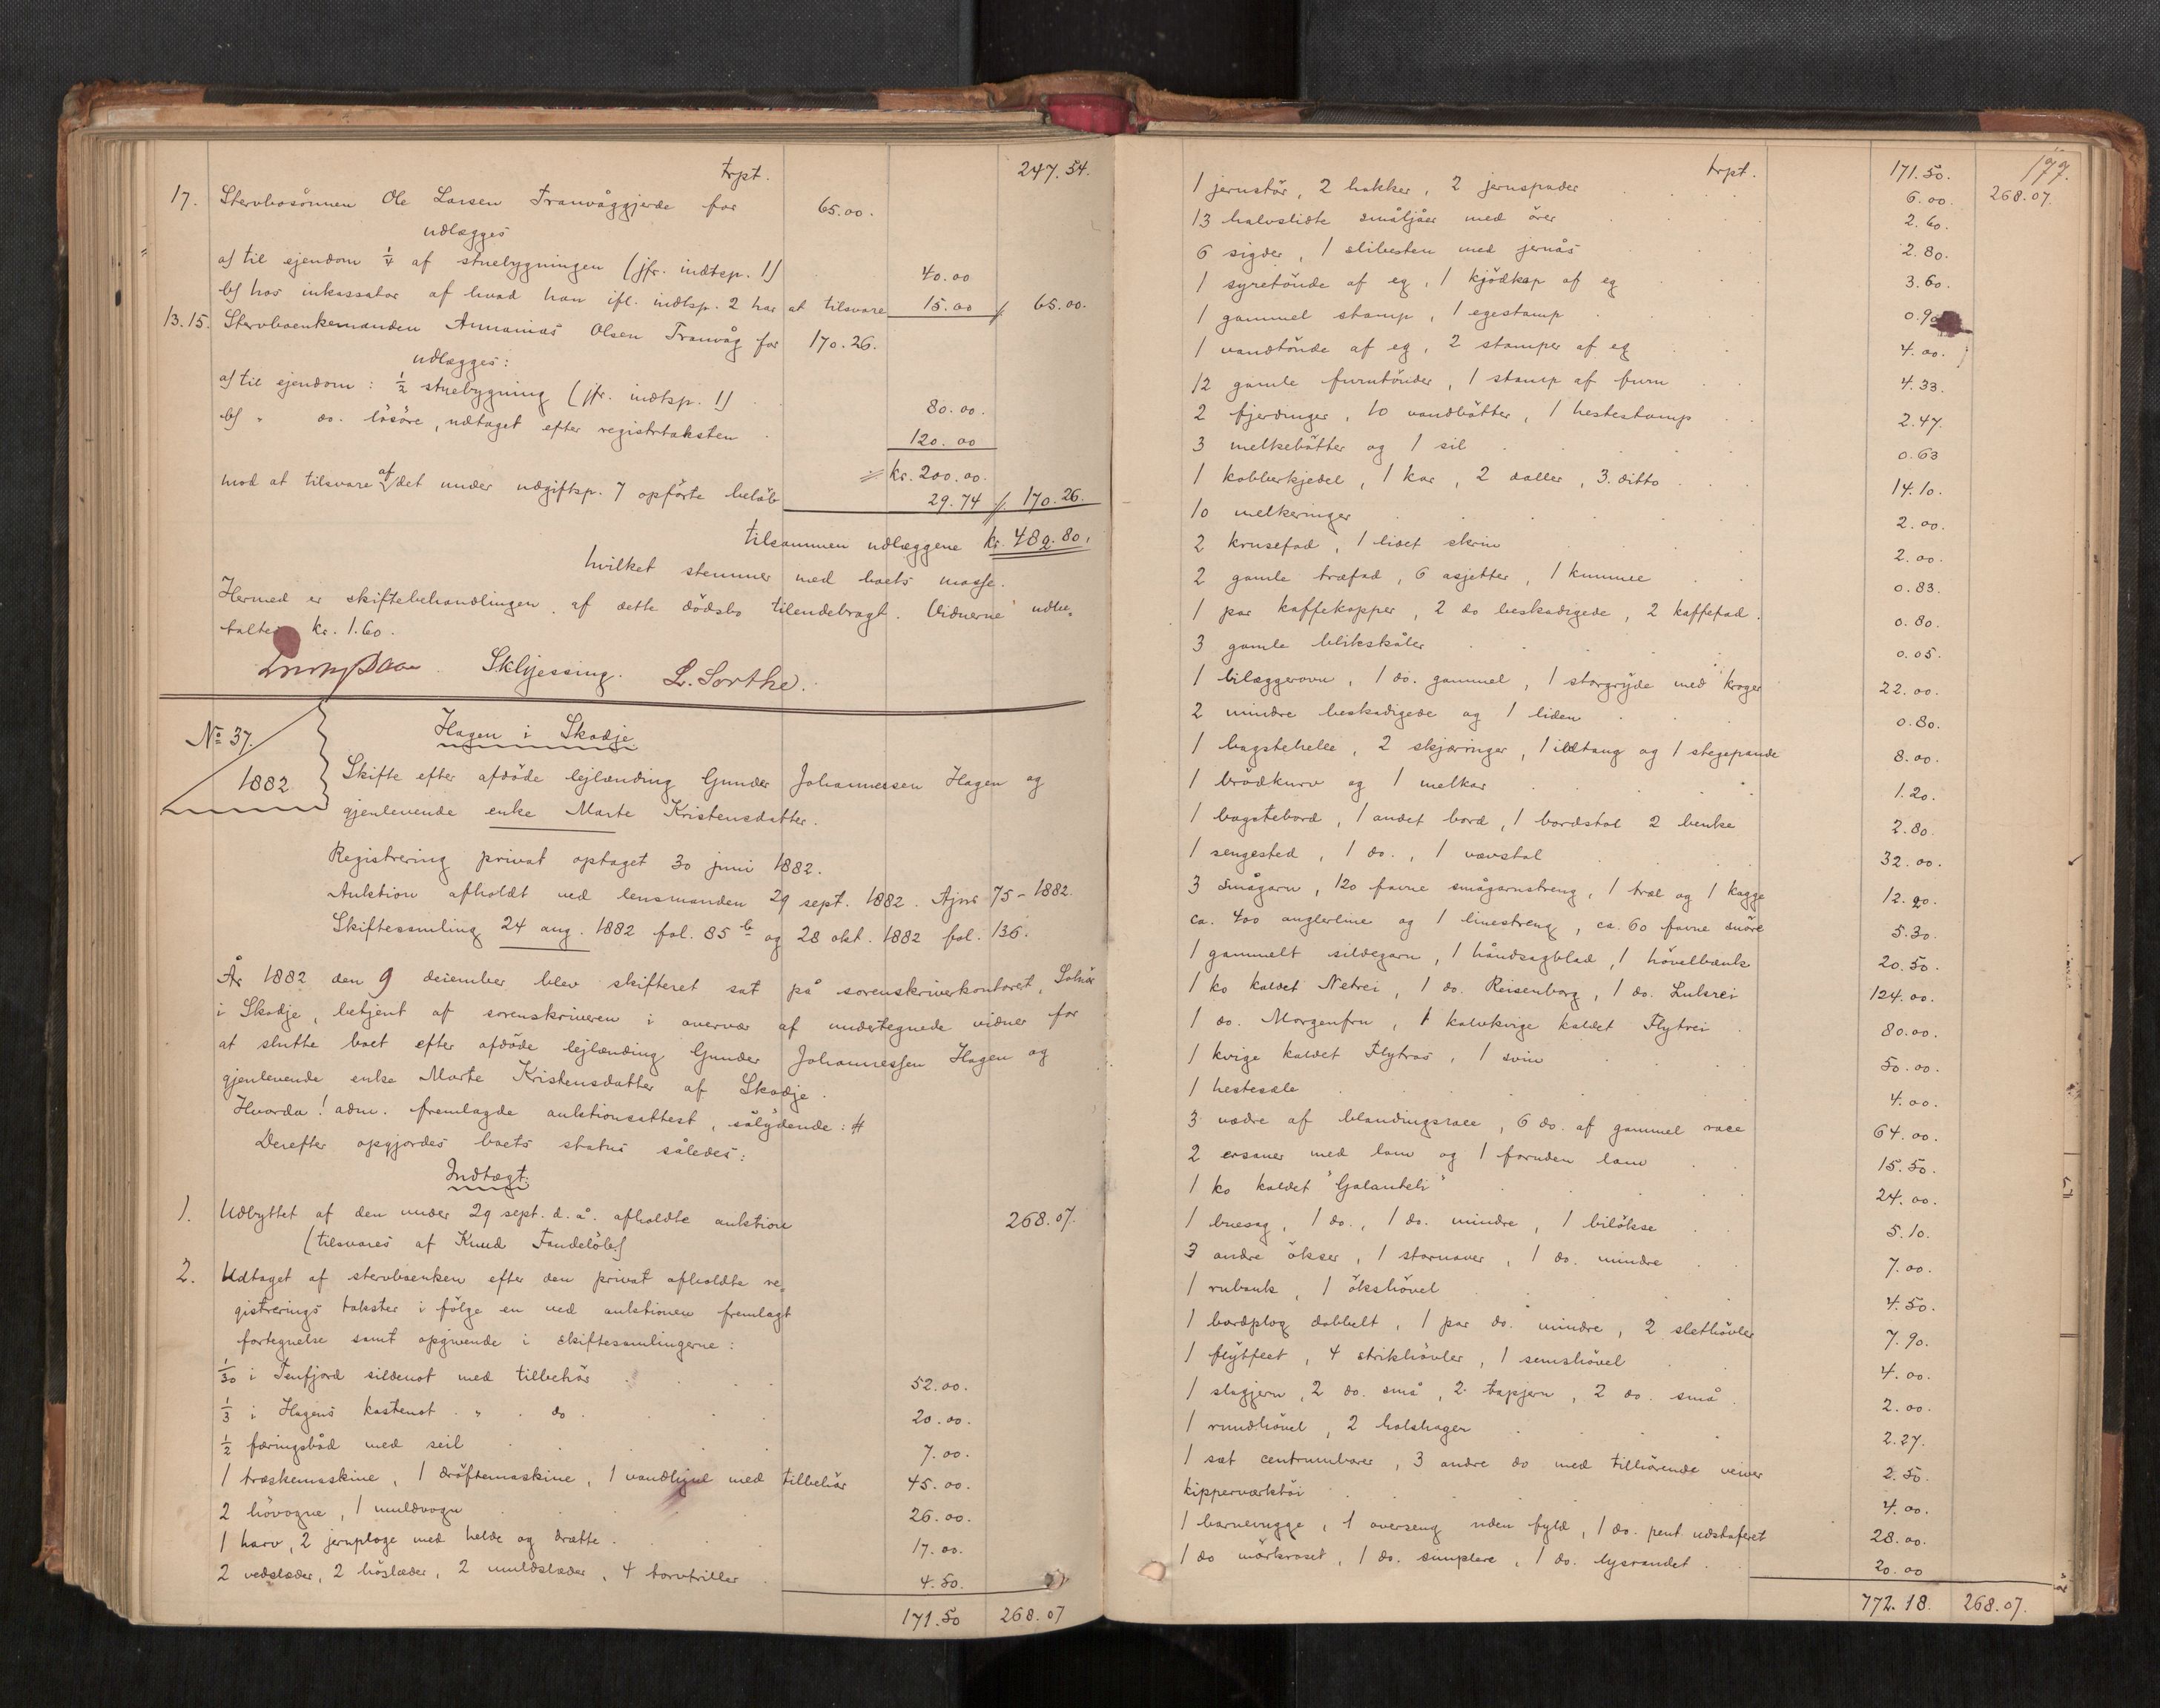 trpt. 247.54.
17. Stervbosönnen Ole Larsen Tranvåggjerde for 65.00.
udlægges
a) til ejendom 1/4 af stuebygningen (jfr. indtsp. 1) 40.00
b) hos inkassator af hvad han ifl. indtsp. 2 har at tilsvare 15.00 // 65.00.
13.15. Stervboenkemanden Annanias Olsen Tranvåg for 170.26.
udlægges:
a) til ejendom: 1/2 stuebygning (jfr. indtsp. 1) 80.00.
b) " do. lösöre, udtaget efter registrtaksten 120.00
kr. 200.00.
mod at tilsvare af det under udgiftsp. 7 opförte belöb 29.74 // 170.26.
tilsammen udlæggene kr. 482.80.
hvilket stemmer med boets masse.
Hermed er skiftebehandlingen af dette dödsbo tilendebragt. Vidnerne udbe-
taltes kr. 1.60.
L. Sorthe.
No 37.
1882
Hagen i Skodje
Skifte efter afdöde lejlænding Gunder Johannessen Hagen og
gjenlevende enke Marte Kristensdatter.
Registrering privat optaget 30 juni 1882.
Auktion afholdt ved lensmanden 29 sept. 1882. Ajnr 75-1882.
Skiftesamling 24 aug. 1882 fol. 85 b og 28 okt. 1882 fol. 136.
År 1882 den 9 december blev skifteret sat på sorenskriverkontoret, Solnör
i Skodje, betjent af sorenskriveren i overvær af undertegnede vidner for
at slutte boet efter afdöde lejlænding Gunder Johannessen Hagen og
gjenlevende enke Marte Kristensdatter af Skodje.
Hvorda! adm. fremlagde auktionsattest, sålydende: #
Derefter opgjordes boets status således:
Indtægt.
1. Udbyttet af den under 29 sept. d. å. afholdte auktion 268.07.
(tilsvares af Knud Fandelöb)
2. Udtaget af stervboenken efter den privat afholdte re-
gistrerings takster i fölge en ved auktionen fremlagt
fortegnelse samt opgivende i skiftesamlingerne:
1/30 i Tenfjord sildenot med tilbehör 52.00.
1/3 i Hagens kastenot " do 20.00.
1/2 færingsbåd med seil 7.00.
1 træskemaskine, 1 dröftemaskine, 1 vandhjul med tilbehör 45.00.
2 hövogne, 1 muldvogn 26.00.
1 harv, 2 jernploge med helde og drætte 17.00.
2 vedslæder, 2 höslæder, 2 muldslæder, 4 torvtriller 4.50.
171.50 268.07
177.
trpt. 171.50. 268.07.
1 jernstör, 2 hakker, 2 jernspader 6.00.
13 halvslidte småljåer med örer 2.60.
6 sigder, 1 slibesten med jernås 2.80.
1 syretönde af eg, 1 kjödkap af eg 3.60.
1 gammel stamp, 1 egestamp 0.90
1 vandtönde af eg, 2 stamper af eg 4.00.
12 gamle furutönder, 1 stamp af furu 4.33.
2 fjerdinger, 10 vandbötter, 1 hestestamp 2.47.
3 melkebötter og 1 sil 0.63
1 kobberkjedel, 1 kar, 2 daller, 3. ditto 14.10.
10 melkeringer 2.00.
2 krusefad, 1 lidet skrin 2.00.
2 gamle træfad, 6 asjetter, 1 kumme 0.83.
1 par kaffekopper, 2 do beskadigede, 2 kaffefad 0.80.
3 gamle blikskåler 0.05.
1 bilæggerovn, 1 do. gammel, 1 storgryde med kroger 22.00.
2 mindre beskadigede og 1 liden 0.80.
1 bagstehelle, 2 skjæringer, 1 ildtang og 1 stegepande 8.00.
1 brödkurv og 1 melkar 1.20.
1 bagstebord, 1 andet bord, 1 bordstol 2 benke 2.80.
1 sengested, 1 do., 1 vævstol 32.00.
3 smågarn, 120 favne smågarnstreng, 1 tral og 1 kagge 12.20.
ca. 400 anglerline og 1 linestreng, ca. 60 favne snöre 5.30.
1 gammelt sildegarn, 1 håndsagblad, 1 hövelbænk 20.50.
1 ko kaldet Netrei, 1 do. Reisenborg, 1 do. Luksrei 124.00.
1 do. Morgenfru, 1 kalvkvige kaldet Flytrei 80.00.
1 kvige kaldet Flytros, 1 svin 50.00.
1 hestesæle 4.00.
3 vædre af blandingsrace, 6 do. af gammel race 64.00.
2 ersauer med lam og 1 foruden lam 15.50.
1 ko kaldet "Galanteli" 24.00.
1 buesag, 1 do., 1 do. mindre, 1 bilökse 5.10.
3 andre ökser, 1 stornaver, 1 do. mindre 7.00.
1 rubank, 1 ökshövel 4.50.
1 bordplog dobbelt, 1 par do. mindre, 2 slethövler 7.90.
1 flytfeet, 4 strikhövler, 1 semshövel 4.00.
1 slagjern, 2 do. små, 2 tapjern, 2 do. små 2.00.
1 rundhövel, 2 halshager 2.27.
1 sæt centrumborer, 3 andre do med tilhörende veiver 2.50.
kipperværktöi 4.00.
1 barnevugge, 1 overseng uden fyld, 1 do. pent udstaferet 28.00.
1 do mörkroset, 1 do. simplere, 1 do. lysrandet 20.00
772.18. 268.07.